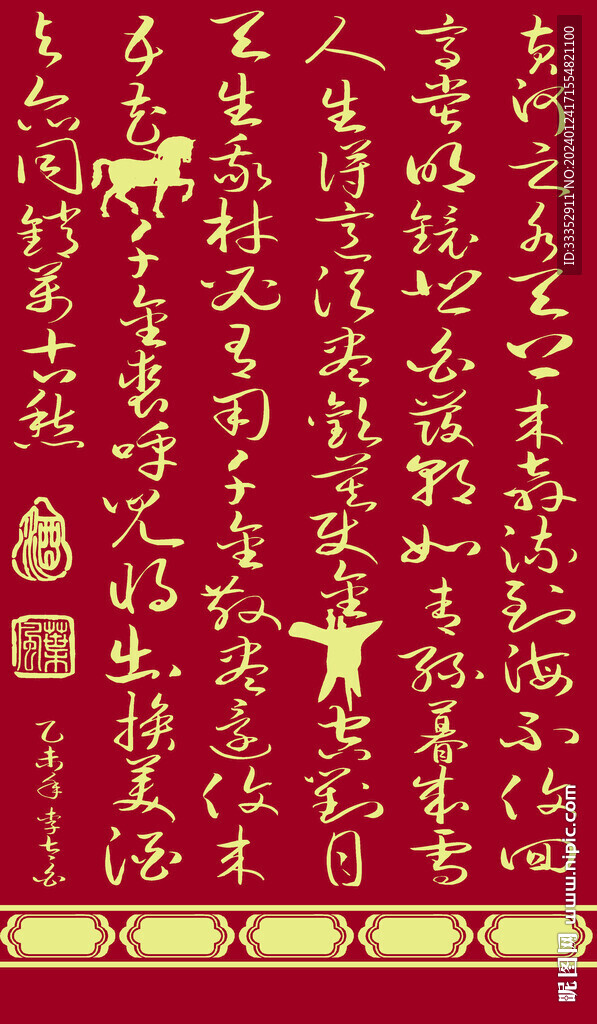 黄河之水天上来奔流到海不復回
高堂明鏡悲白發朝如青絲暮成雪
人生得意須尽歡莫使金空對月
天生我材必有用千金散尽還復来
五花千金裘呼兒将出換美酒
与尔同銷萬古愁
酒
乙未年李太白
ID:33352911 NO:20240124171554821100
昵图网 www.nipic.com